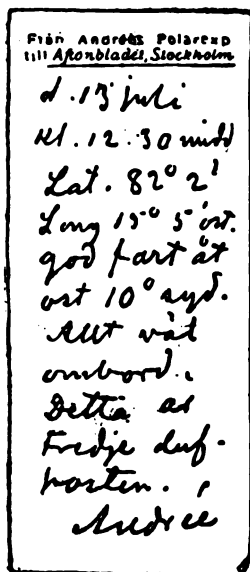 Från Andrées Polarexp
till Aftonbladet, Stockholm
d. 13 juli
kl. 12.30 midd
Lat. 82° 2'
Long 15° 5' ost.
god fart åt
ost 10° syd.
Allt väl
ombord.
Detta är
tredje duf-
posten.
Andrée